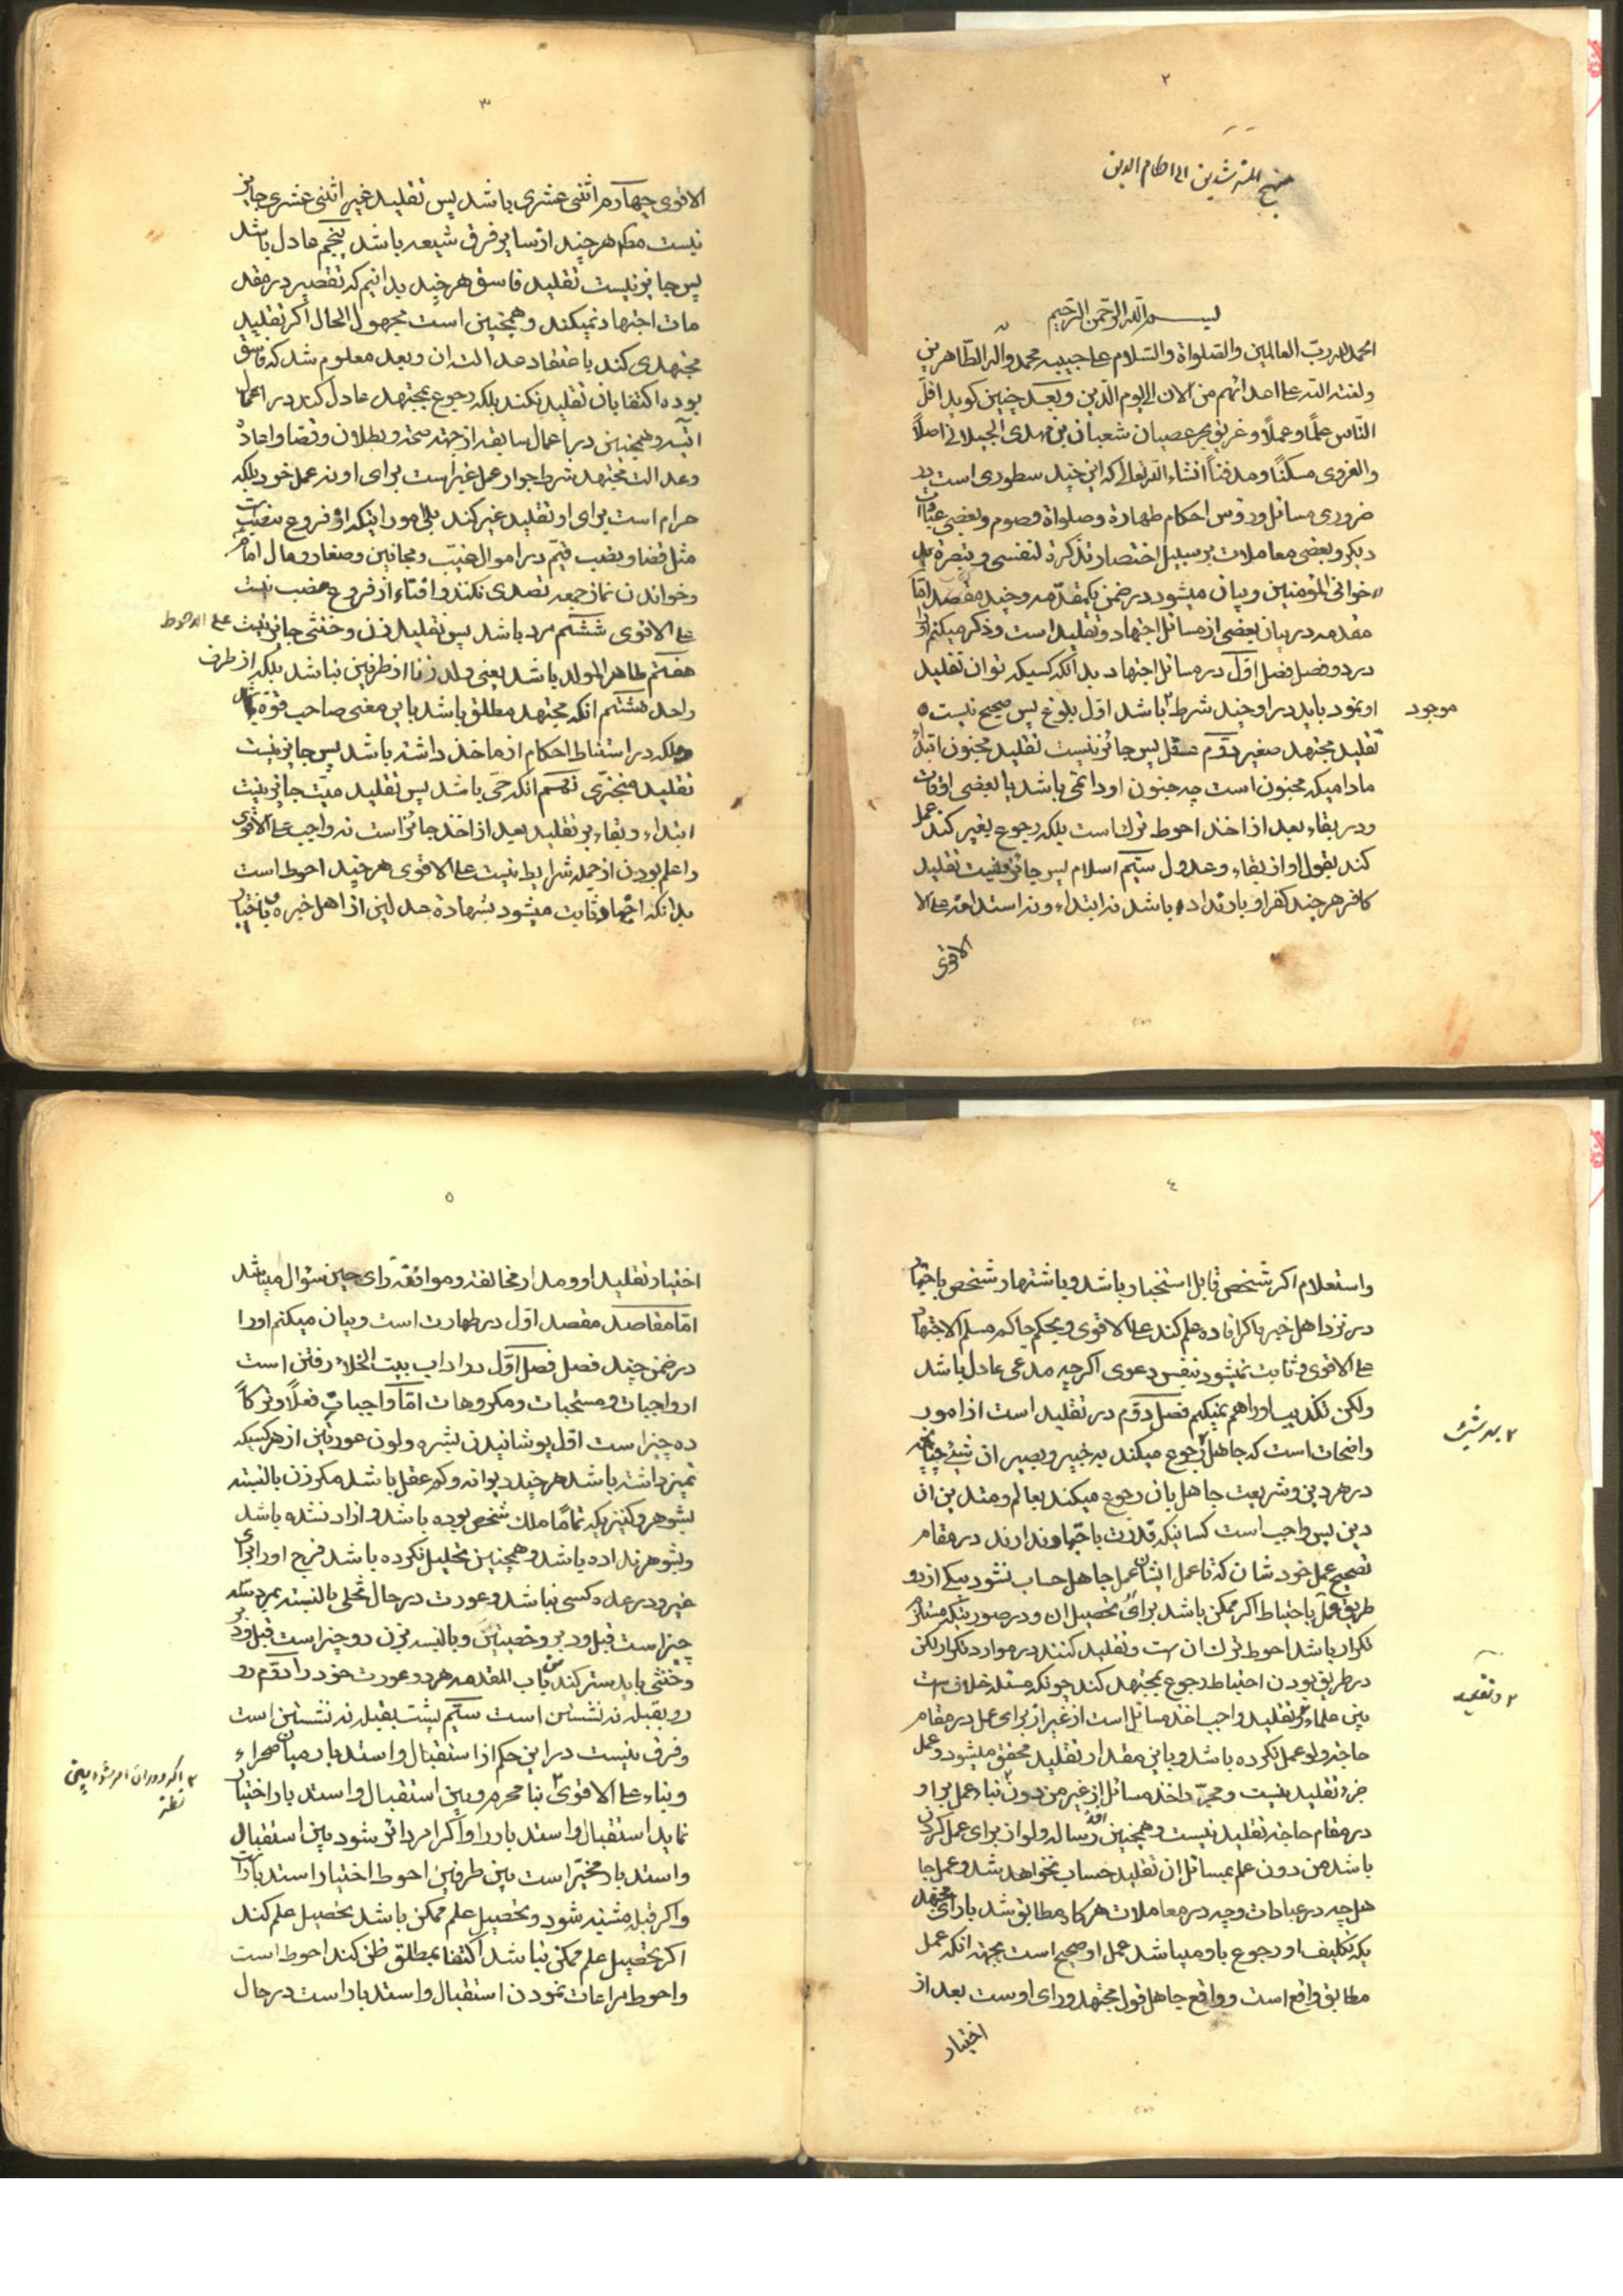 ۲
منهج المسترشدین الی احکام الدین
بسم الله الرحمن الرحیم
الحمد لله رب العالمین والصلواة والسلام علی حبیبه محمد وآله الطاهرین
ولعنة الله علی اعدائهم من الان الی یوم الدین وبعد چنین کوید اقل
الناس علماً وعملاً وغریق بحر عصیان شعبان بن مهدی الجیلانی اصلاً
والغروی مسکناً ومدفناً انشاء الله تعالی که این چند سطوری است در
ضروری مسائل ورؤس احکام طهارة وصلواة وصوم وبعضی عبادات
دیکر وبعضی معاملات بر سبیل اختصار تذکرة لنفسی وتبصرة
لاخوانی المؤمنین وبیان میشود در ضمن یکمقدمه وچند مقصد امّا
مقدمه در بیان بعضی از مسائل اجتهاد وتقلید است وذکر میکنم اورا
در دو فصل فصل اوّل در مسائل اجتهاد بدانکه کسیکه توان تقلید
او نمود باید در او چند شرط باشد اوّل بلوغ پس صحیح نیست
موجود
تقلید مجتهد صغیر دوّم عقل پس جائز نیست تقلید مجنون ابتداءً
مادامیکه مجنون است چه جنون او دائمی باشد یا بعضی اوقات
ودر بقاء بعد از اخذ احوط ترک است بلکه رجوع بغیر کند عمل
کند بقول او از بقاء وعدول سیّم اسلام پس جائز نیست تقلید
کافر هرچند کفر او بارتداد باشد نه ابتداء ونه استدامة علی الا
الاقوی
۳
الاقوی چهارم اثنی عشری باشد پس تقلید غیر اثنی عشری جایز
نیست مط هرچند از سایر فرق شیعه باشد پنجم عادل باشد
پس جایز نیست تقلید فاسق هرچند بدانیم که تقصیر در مقد
مات اجتهاد نمیکند وهمچنین است مجهول الحال اکر تقلید
مجتهدی کند باعتقاد عدالت ان وبعد معلوم شد که فاسق
بوده اکتفا بان تقلید نکند بلکه رجوع بمجتهد عادل کند در اعمال
اتیه وهمچنین در باعمال سابقه از جهة صحة وبطلان وقضا واعاده
وعدالت مجتهد شرط جواز عمل غیر است برای او نه عمل خود بلکه
حرام است برای او تقلید غیر کند بلی امور اینکه از فروع منصب
مثل قضا ونصب قیّم در اموال غیّب ومجانین وصغار ومال امام
وخواندن نماز جمعه تصدی نکنند وافتاء از فروع منصب نیست
علی الاقوی ششم مرد باشد پس تقلید زن وخنثی جایز نیست علی الاحوط
هفتم طاهر المولد باشد یعنی ولد زنا از طرفین نباشد بلکه از طرف
واحد هشتم انکه مجتهد مطلق باشد باین معنی صاحب قوّه
وملکه در استنباط احکام از ماخذ داشته باشد پس جایز نیست
تقلید متجزّی نهم انکه حیّ باشد پس تقلید میّت جایز نیست
ابتداء وبقاء بر تقلید بعد از اخذ جائز است نه واجب علی الاقوی
واعلم بودن از جمله شرایط نیست علی الاقوی هرچند احوط است
بدانکه اجتهاد ثابت میشود بشهادة عدلین از اهل خبره وباختبار
۴
واستعلام اکر شخص قابل استخبار باشد وباشتهار شخص باجتهاد
در نزد اهل خبره اکر افاده علم کند علی الاقوی وبحکم حاکم مسلم الاجتهاد
علی الاقوی وثابت نمیشود بنفس دعوی اکرچه مدعی عادل باشد
ولکن تکذیب اورا هم نمیکنیم فصل دوّم در تقلید است از امور
واضحات است که جاهل رجوع میکند به خبیر وبصیر ان شیئ چنانچه
در هر دین وشریعت جاهل بان رجوع میکند بعالم ومتدین ان
دین پس واجب است کسانیکه قدرت باجتهاد ندارند در مقام
تصحیح عمل خودشان که تا عمل ایشان عمل جاهل حساب نشود بیکی از دو
طریق عمل باحتیاط اکر ممکن باشد برای تحصیل ان ودر صورتیکه مستلزم
تکرار باشد احوط ترک ان است وتقلید کنند در موارد تکرار لکن
در طریق بودن احتیاط رجوع بمجتهد کند چونکه مسئله خلاف است
بین علماء وتقلید واجب اخذ مسائل است از غیر از برای عمل در مقام
حاجة ولو عمل نکرده باشد وباین مقدار تقلید محقق میشود وعمل
جزء تقلید نیست ومجرّد اخذ مسائل از غیر من دون بناء عمل بر او
در مقام حاجة تقلید نیست وهمچنین اخذ رساله ولو از برای عمل کردن
باشد من دون علم بمسائل ان تقلید حساب نخواهد شد وعمل جا
هل چه در عبادات وچه در معاملات هرکاه مطابق شد بارای مجتهد
یکه تکلیف او رجوع باو میباشد عمل او صحیح است بجهة انکه عمل
مطابق واقع است وواقع جاهل قول مجتهد ورای اوست بعد از
اختیار
۵
اختیار تقلید او ومدار مخالفة وموافقة رای حین سئوال میباشد
امّا مقاصد مقصد اوّل در طهارت است وبیان میکنم اورا
در ضمن چند فصل فصل اوّل در اداب بیت الخلاء رفتن است
از واجبات ومستحبات ومکروهات امّا واجبات فعلاً وترکاً
ده چیز است اوّل پوشانیدن بشره ولون عورتین از هر کسیکه
تمیز داشته باشد هرچند دیوانه وکم عقل باشد مکر زن بالنسبة
بشوهر وکنیزیکه تماماً ملک شخص بوده باشد وازاد نشده باشد
وبشوهر نداده باشد وهمچنین تحلیل نکرده باشد فرج اورا برای
غیر ودر عده کسی نباشد وعورت در حال تخلی بالنسبة بمرد سه
چیز است قبل ودبر وخصیتین وبالنسبه بزن دو چیز است قبل ودبر
وخنثی باید ستر کند من باب المقدمه هر دو عورت خود را دوّم رو
رو بقبله نه نشستن است سیّم پشت بقبله نه نشستن است
وفرق نیست در این حکم از استقبال واستدبار میان صحراء
وبناء علی الاقوی
نماید استقبال واستدبار را واکر امر دائر شود بین استقبال
واستدبار مخیّر است بین طرفین احوط اختیار استدبار است
واکر قبله مشتبه شود وتحصیل علم ممکن باشد تحصیل علم کند
اکر تحصیل علم ممکن نباشد اکتفا بمطلق ظن کند احوط است
واحوط مراعات نمودن استقبال واستدبار است در حال